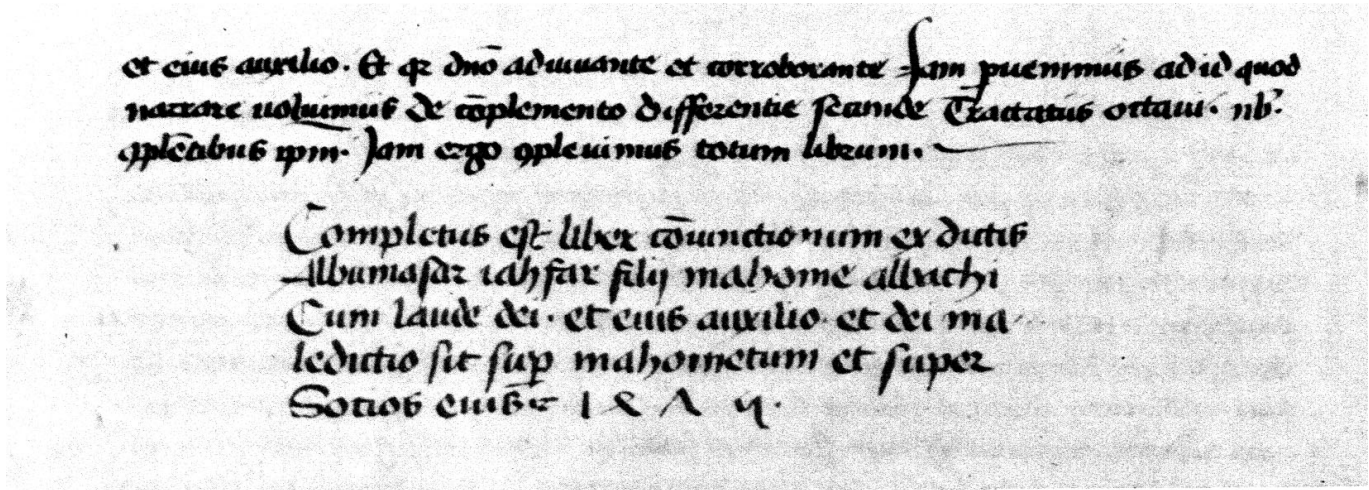 et eius auxilio. Et qr dnō adiuuante et corroborante Jam puenimus ad id quod
narrare uoluimus de cōplemento differentie secunde Tractatus octaui. nb᷒
ꝯplētibus ipm̄. Jam ergo ꝯpleuimus totum librum.
Completus est liber cōiunctionum ex dictis
Albumasar iahfar filij mahome albachi
Cum laude dei. et eius auxilio. et dei ma-
ledictio sit sup mahometum et super
Socios eius 1 8 Λ